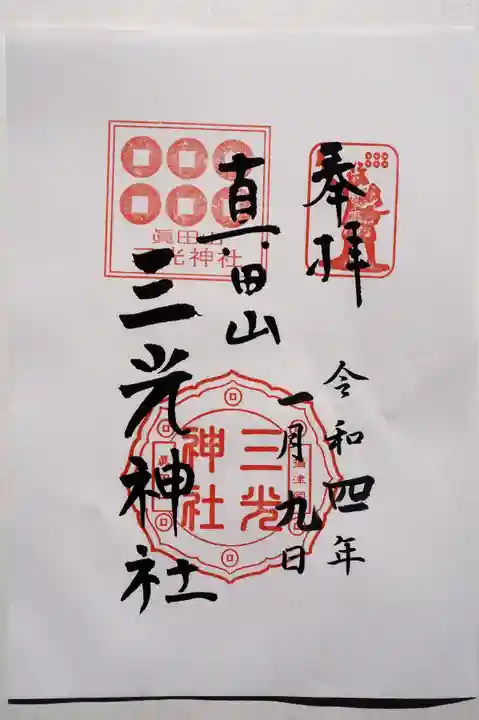 奉拝
令和四年
一月九日
真田山
三光神社
眞田山
三光神社
三光
神社